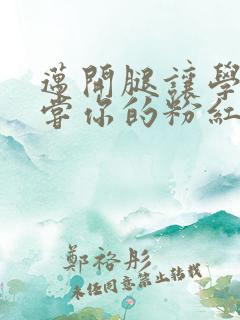 邁開腿讓學
當你的粉紅
鄭裕彤
未经同意禁止转载